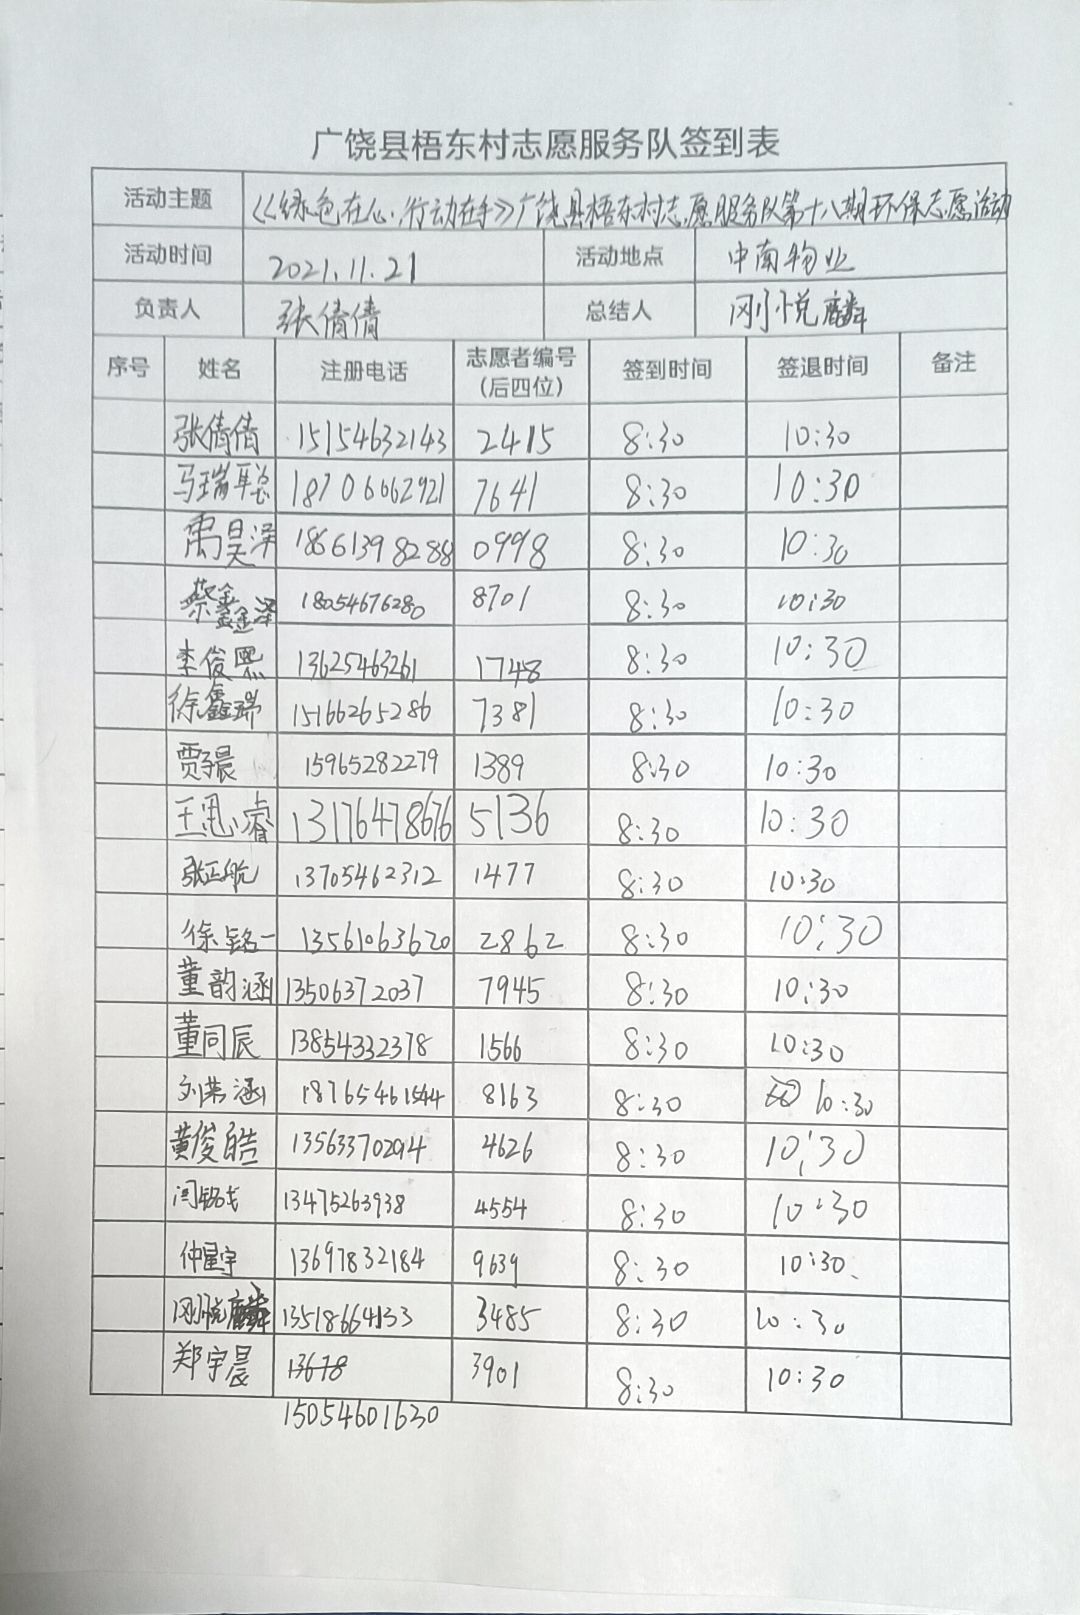 广饶县梧东村志愿服务队签到表
活动主题 《绿色在心,行动在手》广饶县梧东村志愿服务队第十八期环保志愿活动
活动时间 2021.11.21 活动地点 中南物业
负责人 张倩倩 总结人 刚悦麟
序号 姓名 注册电话 志愿者编号(后四位) 签到时间 签退时间 备注
张倩倩 15154632143 2415 8:30 10:30
马瑞聪 18706662921 7641 8:30 10:30
禹昊泽 18661398288 0998 8:30 10:30
蔡鑫泽 18054676280 8701 8:30 10:30
李俊熙 13625463261 1748 8:30 10:30
徐鑫瑞 15166265286 7381 8:30 10:30
贾子晨 15965282279 1389 8:30 10:30
王思睿 13176478676 5136 8:30 10:30
张正航 13705462312 1477 8:30 10:30
徐铭一 13561063620 2862 8:30 10:30
董韵涵 13506372037 7945 8:30 10:30
董同辰 13854332378 1566 8:30 10:30
刘若涵 18765461544 8163 8:30 10:30
黄俊皓 13563370294 4626 8:30 10:30
闫铭 13475263938 4554 8:30 10:30
仲星宇 13697832184 9639 8:30 10:30
刚悦麟 13518664133 3485 8:30 10:30
郑宇晨 13678 3901 8:30 10:30
15054601630